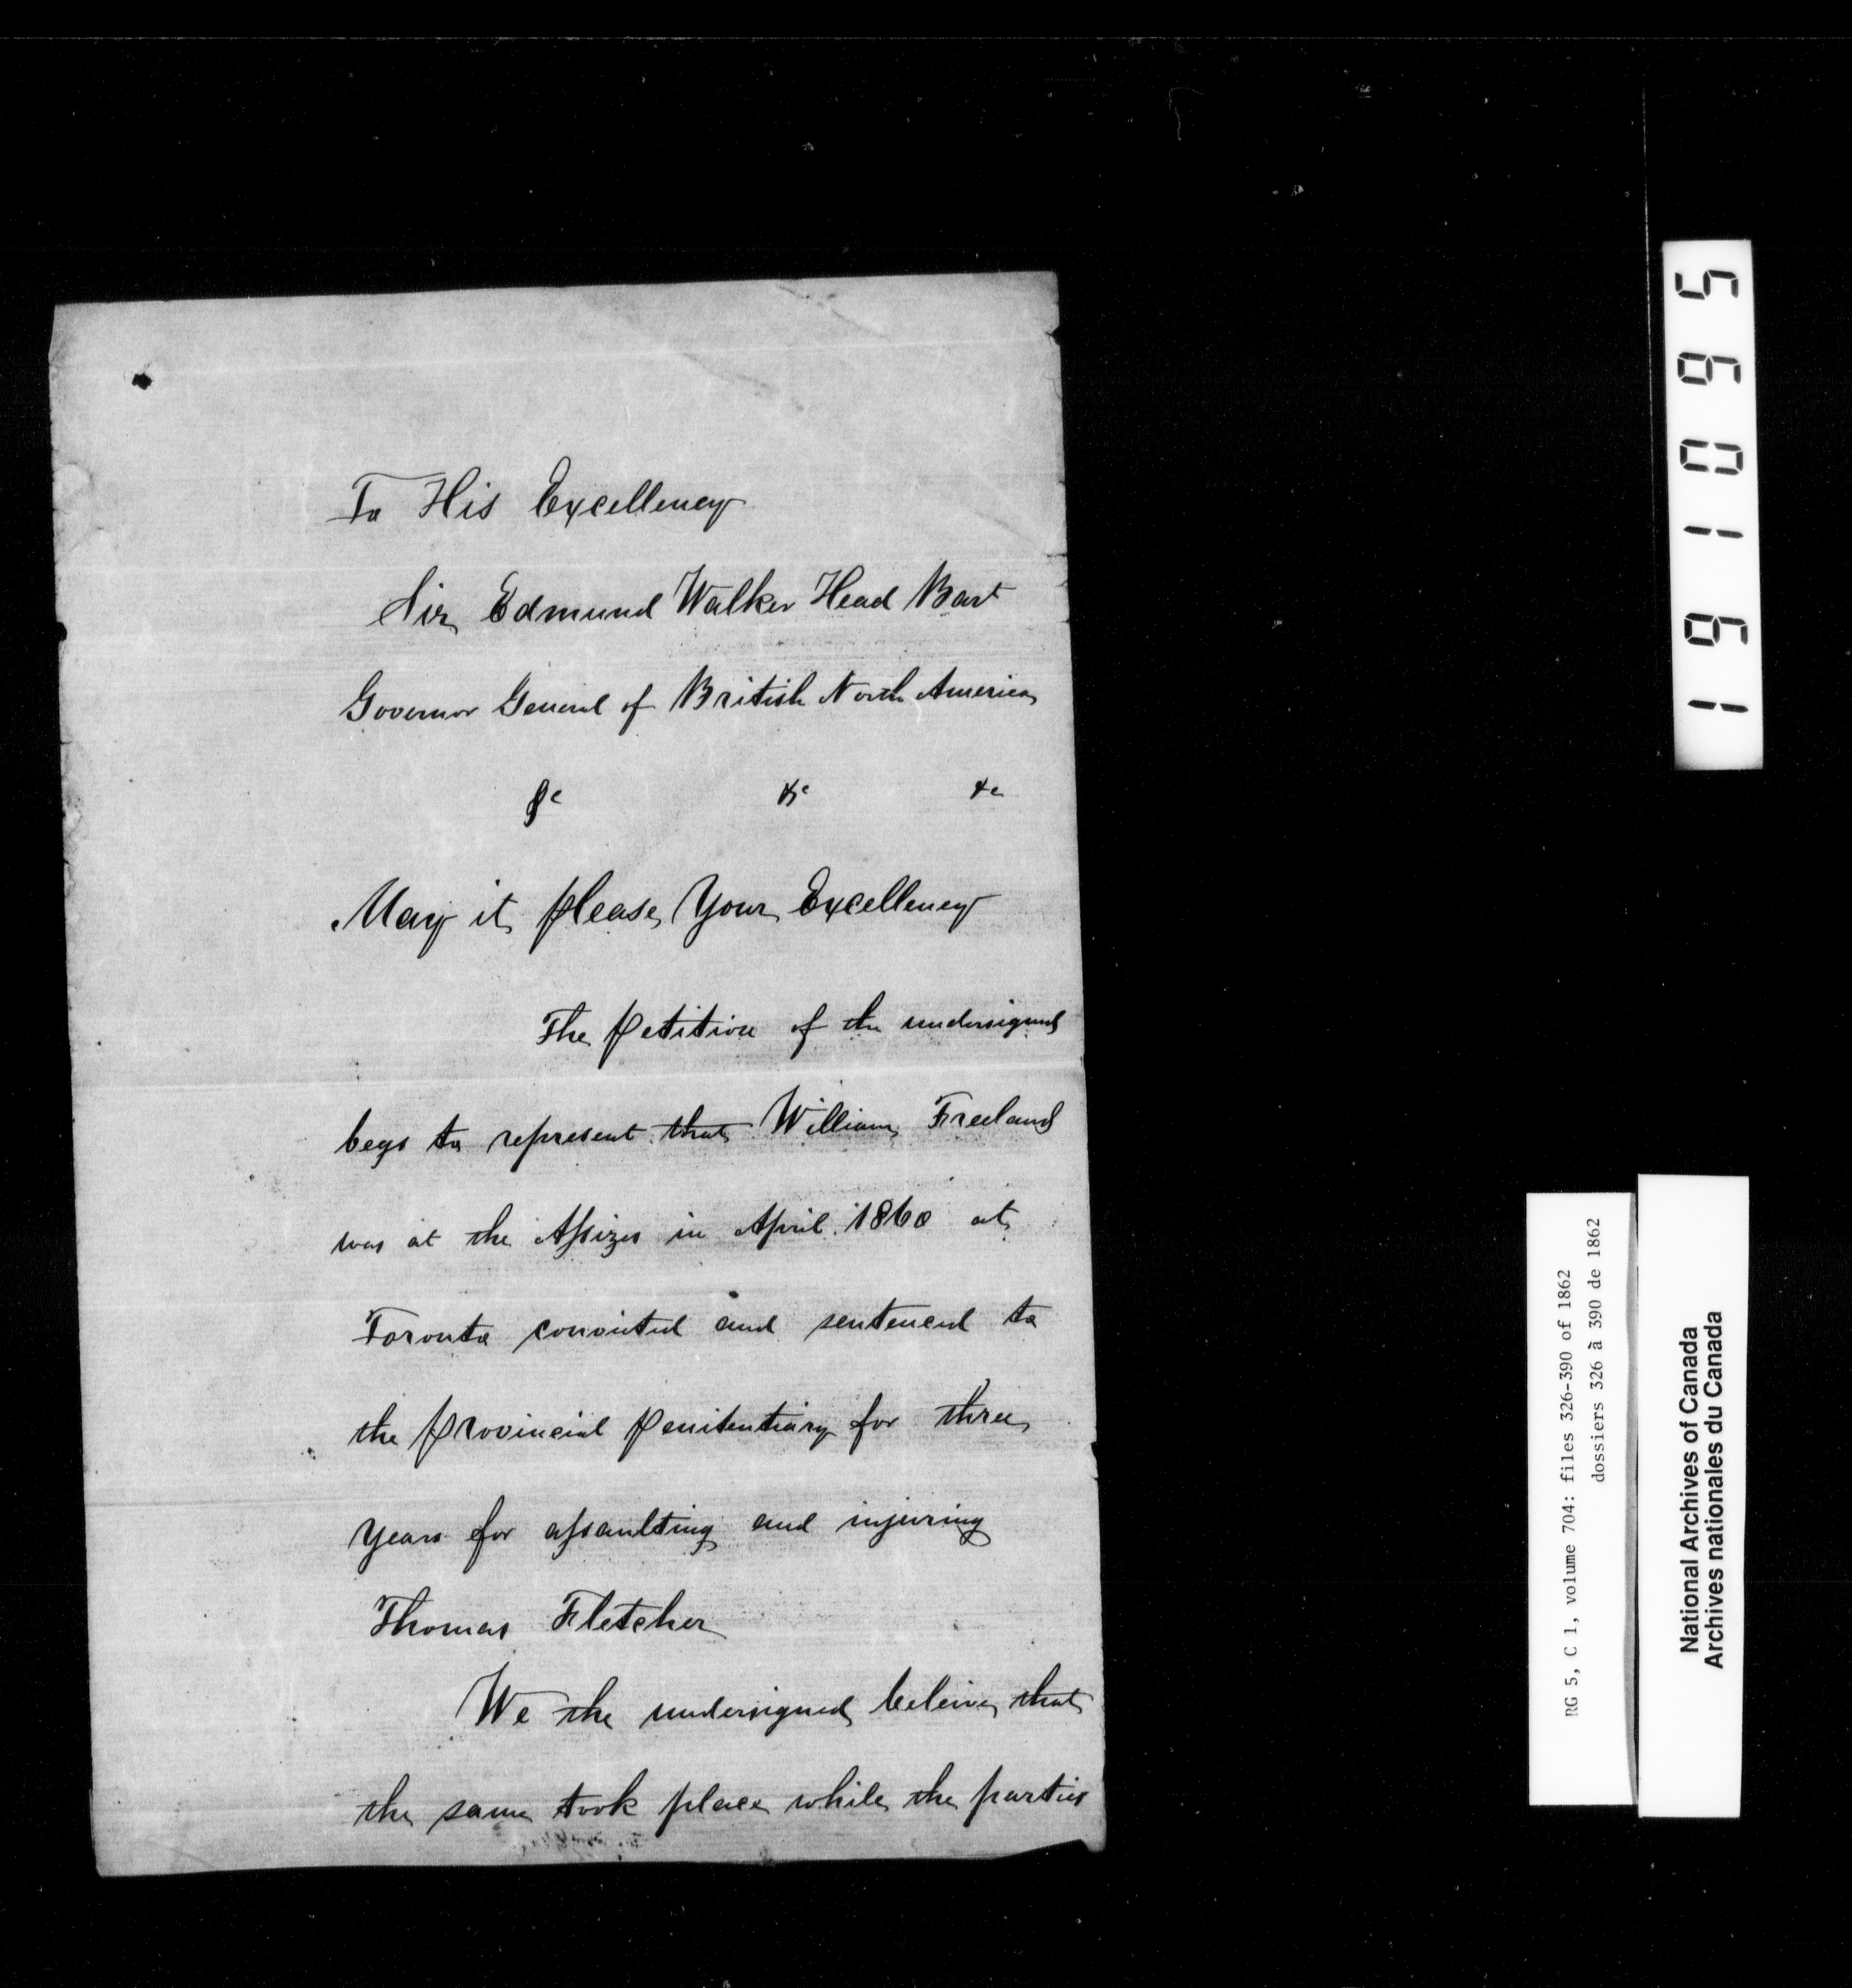 To His Excellency
Sir Edmund Walker Head Bart
Governor General of British North America
&c &c &c
May it please Your Excellency
The petition of the undersigned
begs to represent that William Freeland
was at the Assizes in April 1860 at
Toronto convicted and sentenced to
the provincial penitentiary for three
years for assaulting and injuring
Thomas Fletcher
We the undersigned beleive that
the same took place while the parties
161095
RG 5, C 1, volume 704: files 326-390 of 1862
dossiers 326 à 390 de 1862
National Archives of Canada
Archives nationales du Canada